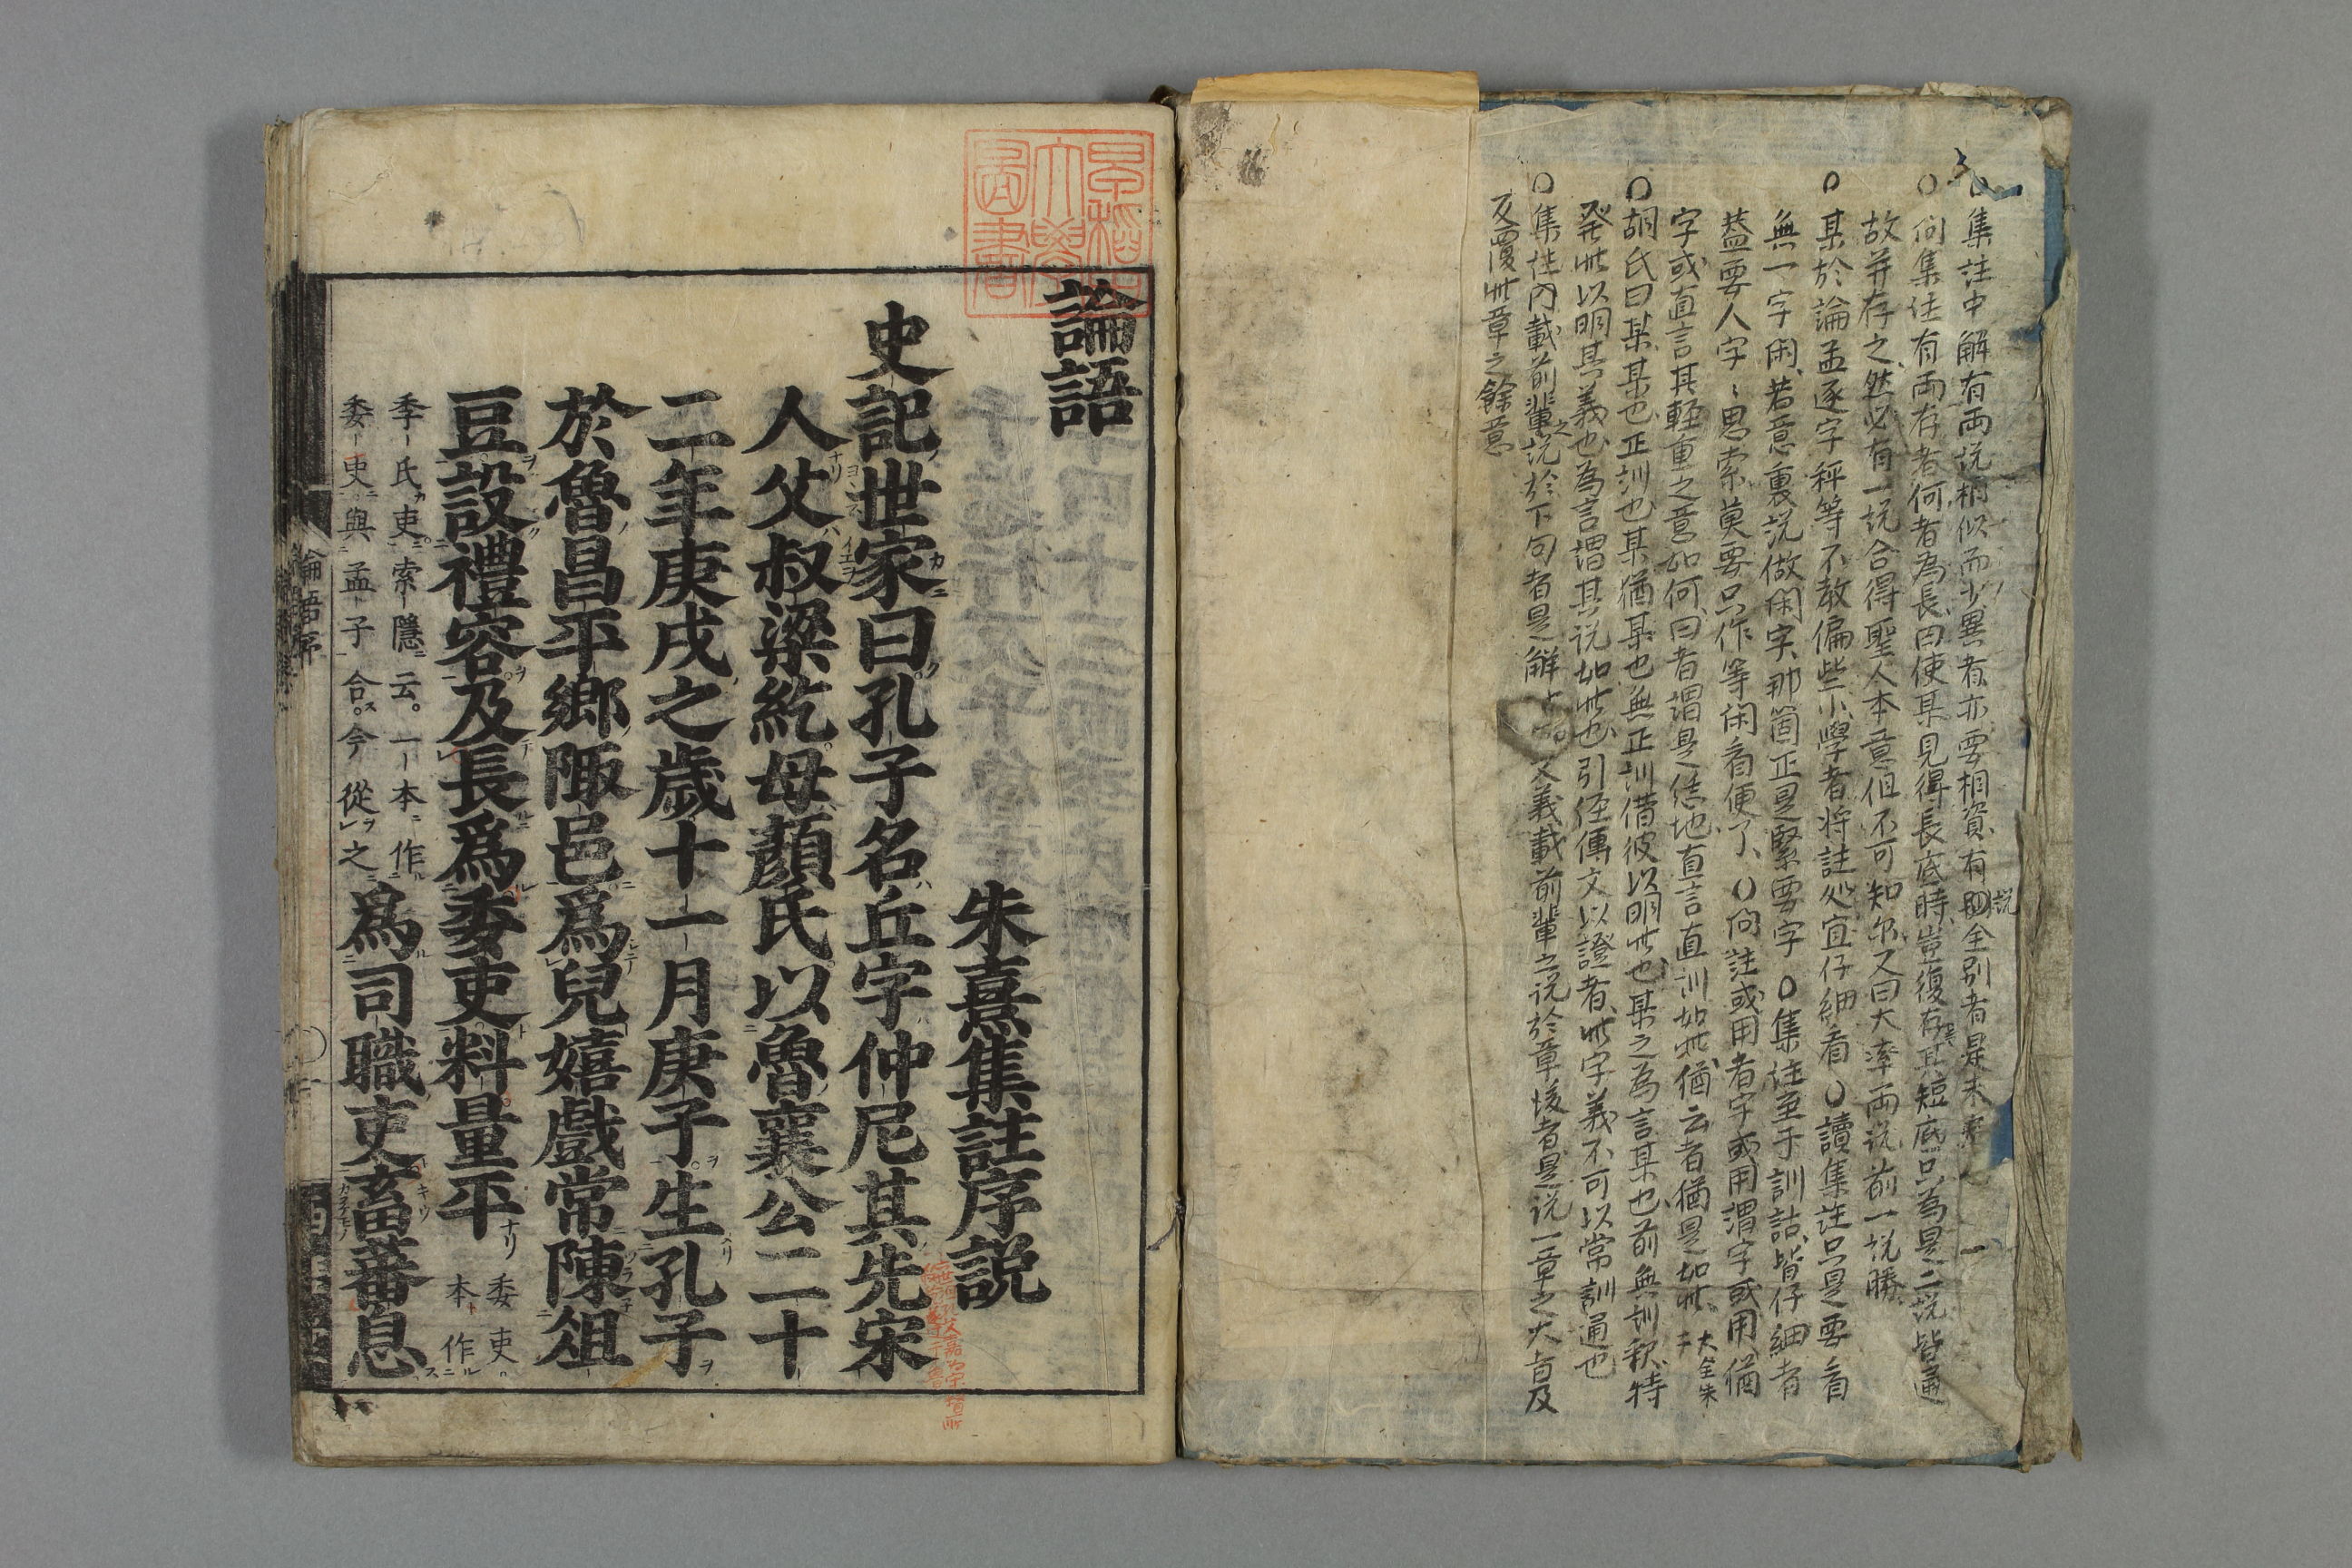 集註中解有両説相似而少異者亦要相資有説全別者是未定
〇問集注有両存者何者為長曰使某見得長底時豈復存其短底只為是二説皆通
故并存之然必有一説合得聖人本意但不可知尔又曰大率両説前一説勝
〇某於論孟逐字秤等不教偏些小學者将註処宜仔細看〇讀集註只是要看
無一字閑若意裏説做閑字那箇正是緊要字〇集注至于訓詁皆仔細者
蓋要人字〻思索莫要只作等閑看便了〇問註或用者字或用謂字或用猶
字或直言其軽重之意如何曰者謂是恁地直言直訓如此猶云者猶是如此 大全朱
〇胡氏曰某某也正訓也某猶某也無正訓借彼以明此也某之為言某也前無訓釈特
発此以明其義也為言謂其説如此也引経傳文以證者此字義不可以常訓通也
〇集注内載前輩之説於下句者是解 文義載前輩之説於章後者是説一章之大旨及
反覆此章之餘意
論語
朱熹集註序説
史記世家曰孔子名丘字仲尼其先宋
人父叔梁紇母顔氏以魯襄公二十
二年庚戌之歳十一月庚子生孔子
於魯昌平郷陬邑爲兒嬉戯常陳俎
豆設禮容及長爲委吏料量平 委吏。本作
季氏吏索隱云。一本作
委吏與孟子合。今從之爲司職吏畜蕃息
論語序
早稲田
大學
圖書